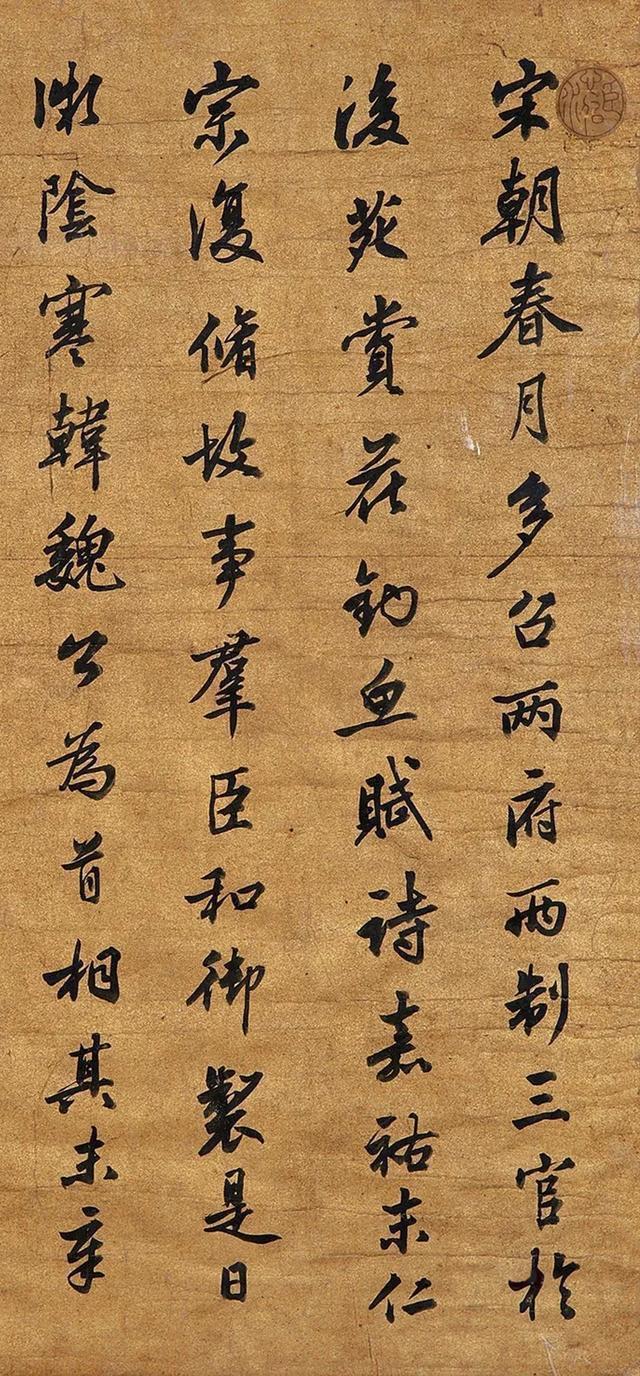 宋朝春月多召两府两制三官於
後苑賞花釣魚賦詩嘉祐末仁
宗復脩故事羣臣和御製是日
微陰寒韓魏公為首相其末章